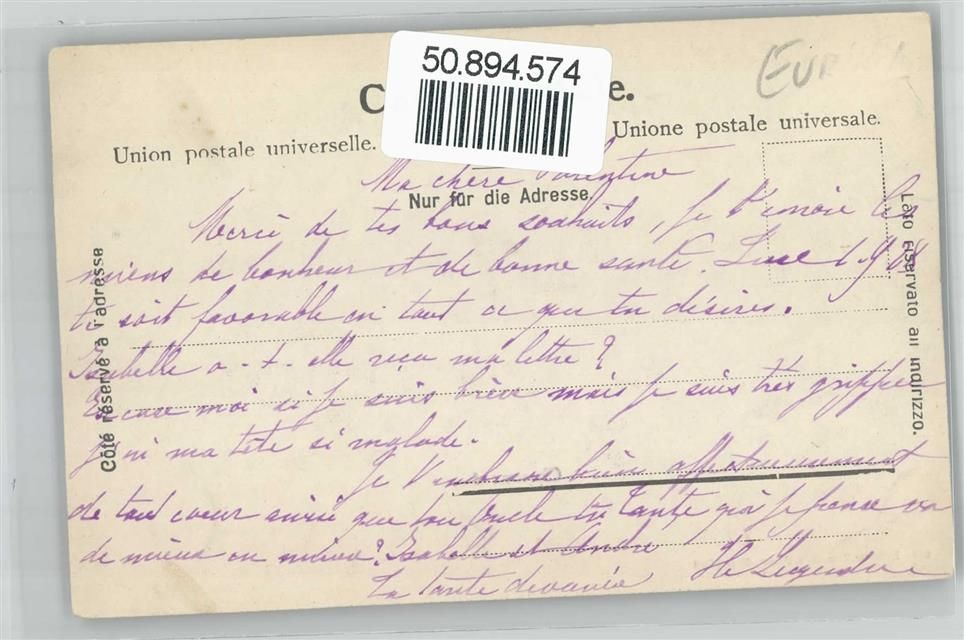 50.894.574
EUR
C e.
Union postale universelle. Unione postale universale.
Ma chère
Nur für die Adresse.
Merci de tes bons souhaits, je t'envoie les
miens de bonheur et de bonne santé. Que 1908
te soit favorable en tout ce que tu désires.
Isabelle a-t-elle reçu ma lettre?
Excuse moi si je suis brève mais je suis très grippée
j'ai ma tête si malade.
Je t'embrasse bien affectueusement
de tout coeur ainsi que ton oncle ta tante qui je pense va
de mieux en mieux? Isabelle et André
Ta tante dévouée
Côté réservé à l'adresse
Lato riservato all'indirizzo.